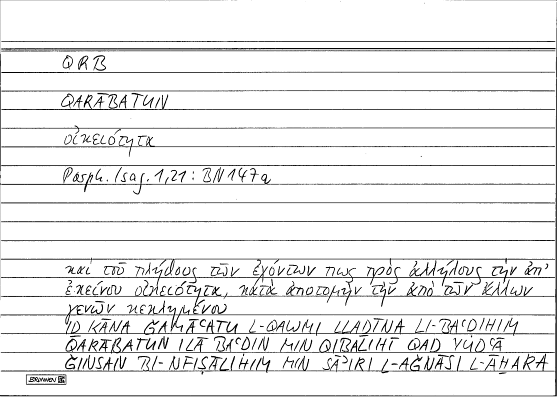 QRB
QARĀBATUN
οἰκειότητα
Porph. Isag. 1,21 : BN 147a
καὶ τοῦ πλήθους τῶν ἐχόντων πως πρὸς ἀλλήλους τὴν ἀπ'
ἐκείνου οἰκειότητα, κατὰ ἀποτομὴν τὴν ἀπὸ τῶν ἄλλων
γενῶν κεκλημένου
ID KĀNA ǦAMĀʿATU L-QAWMI LLADĪNA LI-BAʿDIHIM
QARĀBATUN ILĀ BAʿDIN MIN QIBALIHI QAD YUDʿĀ
ǦINSAN BI-NFIṢĀLIHIM MIN SĀʾIRI L-AǦNĀSI L-ĀHARA
BRUNNEN